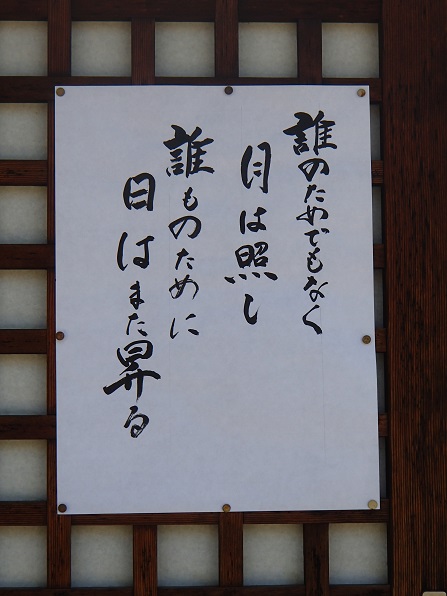 誰のためでもなく
月は照し
誰ものために
日はまた昇る